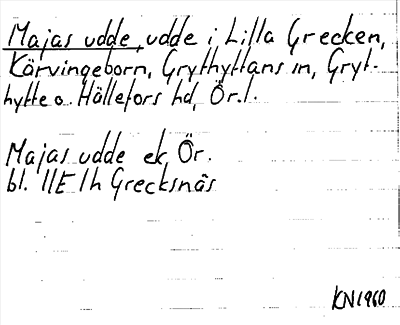 Majas udde, udde i Lilla Grecken,
Kärvingeborn, Grythyttans sn, Gryt-
hytte o. Hällefors hd, Ör. l.
Majas udde ek, Ör.
bl. 11E 1h Grecksnäs
KN1960